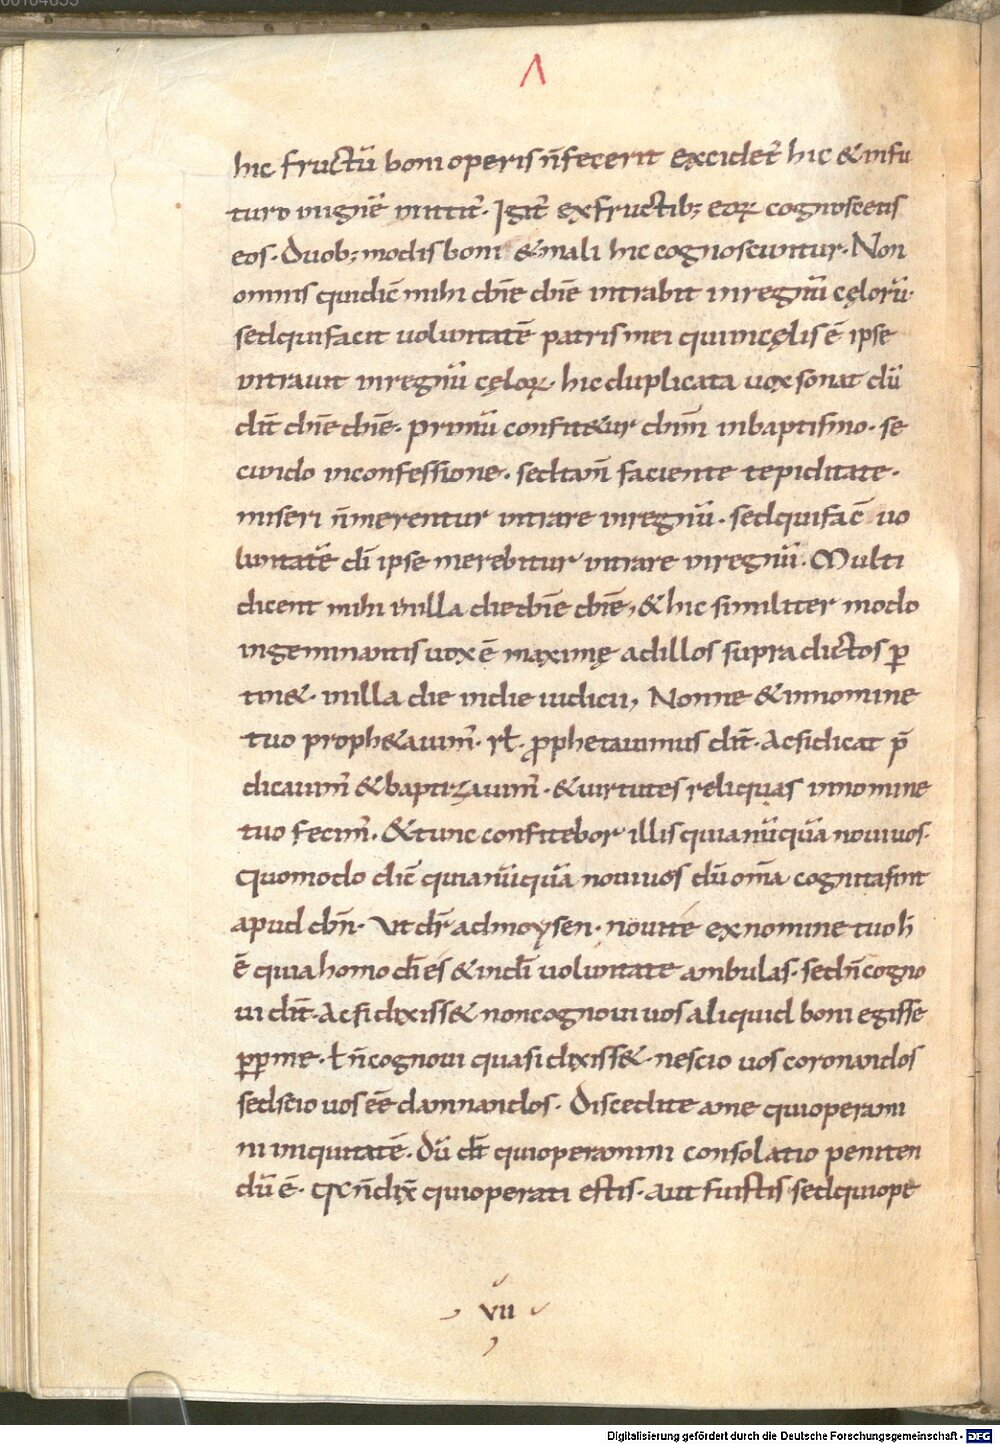 00104633
Λ
hic fructū boni operis n̄ fecerit excidet̄ hic & in fu
turo in ignē mittit̄. Igit̄ ex fructib; eoꝝ cognoscetis
eos. Duob; modis boni & mali hic cognoscuntur. Non
omnis qui dic̄ mihi dn̄e dn̄e intrabit in regnū cęlorū.
sed qui facit uoluntatē patris mei qui in cęlis ē ipse
intrauit in regnū cęloꝝ. hic duplicata uox sonat dū
dic̄t dn̄e dn̄e. primū confit&ur dn̄m in baptismo. se
cundo in confessione. sed tam̄ faciente tepiditate.
miseri n̄ merentur intrare in regnū. sed qui fac̄ uo
luntatē dī ipse merebitur intrare in regnū. Multi
dicent mihi in illa die dn̄e dn̄e, & hic similiter modo
ingeminantis uox ē maxime ad illos supra dictos ꝑ
tin&. in illa die in die iudicii, Nonne & in nomine
tuo proph&auim̄. ƚ ꝓphetauimus dic̄t. Ac si dicat p̄
dicauim̄ & baptizauim̄. & uirtutes reliquas in nomine
tuo fecim̄. & tunc confitebor illis quia nūquā noui uos.
Quomodo dic̄ quia nūquā noui uos dū om̄a cognita sint
apud dn̄m. Ut dr̄ ad moysen. noui te ex nomine tuo h̄
ē quia homo dī es & in dī uoluntate ambulas. sed n̄ cogno
ui dic̄t. Ac si dixiss& non cognoui uos aliquid boni egisse
ꝓpt̄ me. ƚ n̄ cognoui quasi dixiss& nescio uos coronandos
sed scio uos ēe damnandos. Discedite a me qui operami
ni iniquitatē. Dū dic̄t qui operamini consolatio peniten
dū ē. Q̄ n̄ dix̄ qui operati estis. aut fuistis sed qui ope
vii
Digitalisierung gefördert durch die Deutsche Forschungsgemeinschaft - DFG